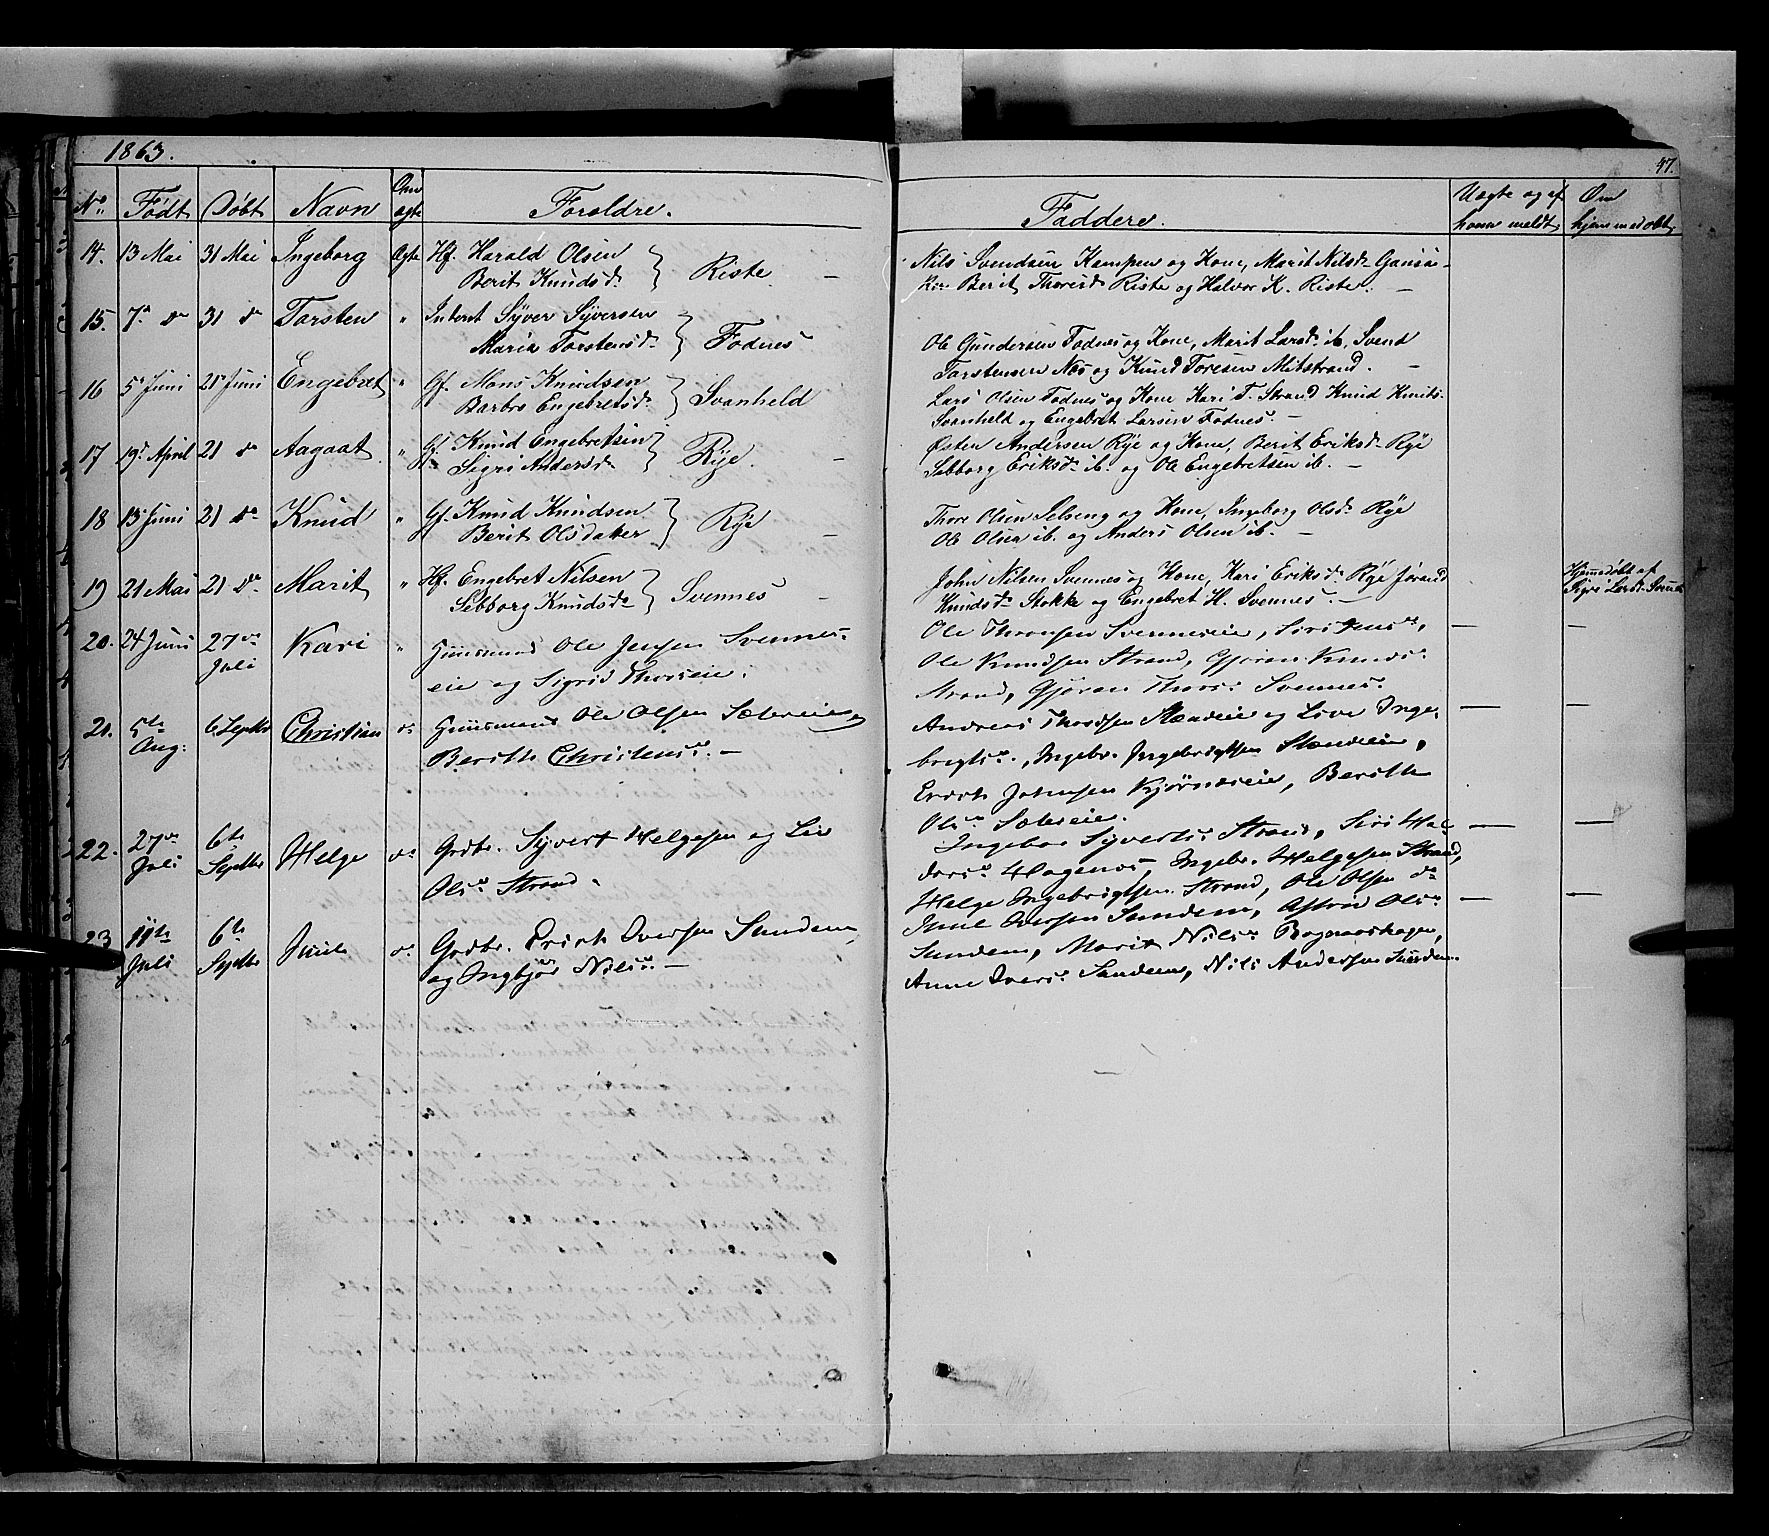 1863.
47.
No. Født Døbt Navn Om ægte Forældre. Faddere. Uægte og af hvem meldt Om hjemmedøbt
14. 13 Mai 31 Mai Ingeborg Ægte Hf. Harald Olsen
Berit Knudsdr. Riste
Nils Svendsen Kampen og Kone, Marit Nilsdr.
Berit Thoresdr. Riste og Halvor K. Riste. —
15. 7de do 31 do Torsten " Inderst Syver Syversen
Maria Torstensdr. Fodnes
Ole Gundersen Fodnes og Kone, Marit Larsdr. ib., Svend
Torstensen Næs og Knud Toresen Midstrand. —
16 5te Juni 21de Juni Engebret " Gf. Mons Knudsen
Barbro Engebretsdr. Svanheld
Lars Olsen Fodnes og Kone Kari T. Strand Knud Knuds.
Svanheld og Engebret Larsen Fodnes. —
17 19de April 21 do Aagaat " Gf. Knud Engebretsen
Sigri Andersdr. Rye. —
Østen Andersen Rye og Kone, Berit Eriksdr. Rye
Sebborg Eriksdr. ib. og Ole Engebretsen ib. —
18 13de Juni 21 do Knud " Gf. Knud Knudsen
Berit Olsdatter Rye —
Thore Olsen Selseng og Kone, Ingeborg Olsdr. Rye
Ole Olsen ib. og Anders Olsen ib. —
19 21 Mai 21 do Marit " Hf. Engebret Nilsen
Sebborg Knudsdr. Svennes —
John Nilsen Svennes og Kone, Kari Eriksdr. Rye Jørand
Knudsdr. Stokke og Engebret H. Svennes. —
Hjemmedøbt af
Sigri Larsdr. Svennes
20. 24 Juni 27de Juli Kari " Huusmand Ole Jensen Svennes-
eie og Sigrid Thorseie.
Ole Thronsen Svenneseie, Siri
Ole Knudsen Strand, Gjøran Knuds.
Strand, Gjøran Thors. Svennes.
21. 5te Aug: 6 Septbr Christian do Huusmand Ole Olsen Sætereie og
Berith Christensdr. —
Andreas Thordsen Stendeie og Live Inge-
brigts., Ingebr. Ingebrigtsen Stendeie,
Erich Johnsen Kjørneseie, Berith
Ols. Sætereie.
22. 27de Juli 6te Septbr Helge do Grdbr. Syvert Helgesen og Liv
Ols. Strand.
Ingebor Syverts. Strand, Siri Hal-
dors. Hagenes, Ingebr. Helgesen Strand,
Helge Ingebrigtsen Strand, Ole Olsen do
23 11te Juli 6te Septbr Juul do Grdbr. Erich Iversen Sundem
og Ingbjør Nils. —
Juul Iversen Sundem, Astrid Ols.
Sundem, Marit Nils. Bagnaashagen,
Anne Ivers. Sundem, Nils Andersen Sundem.